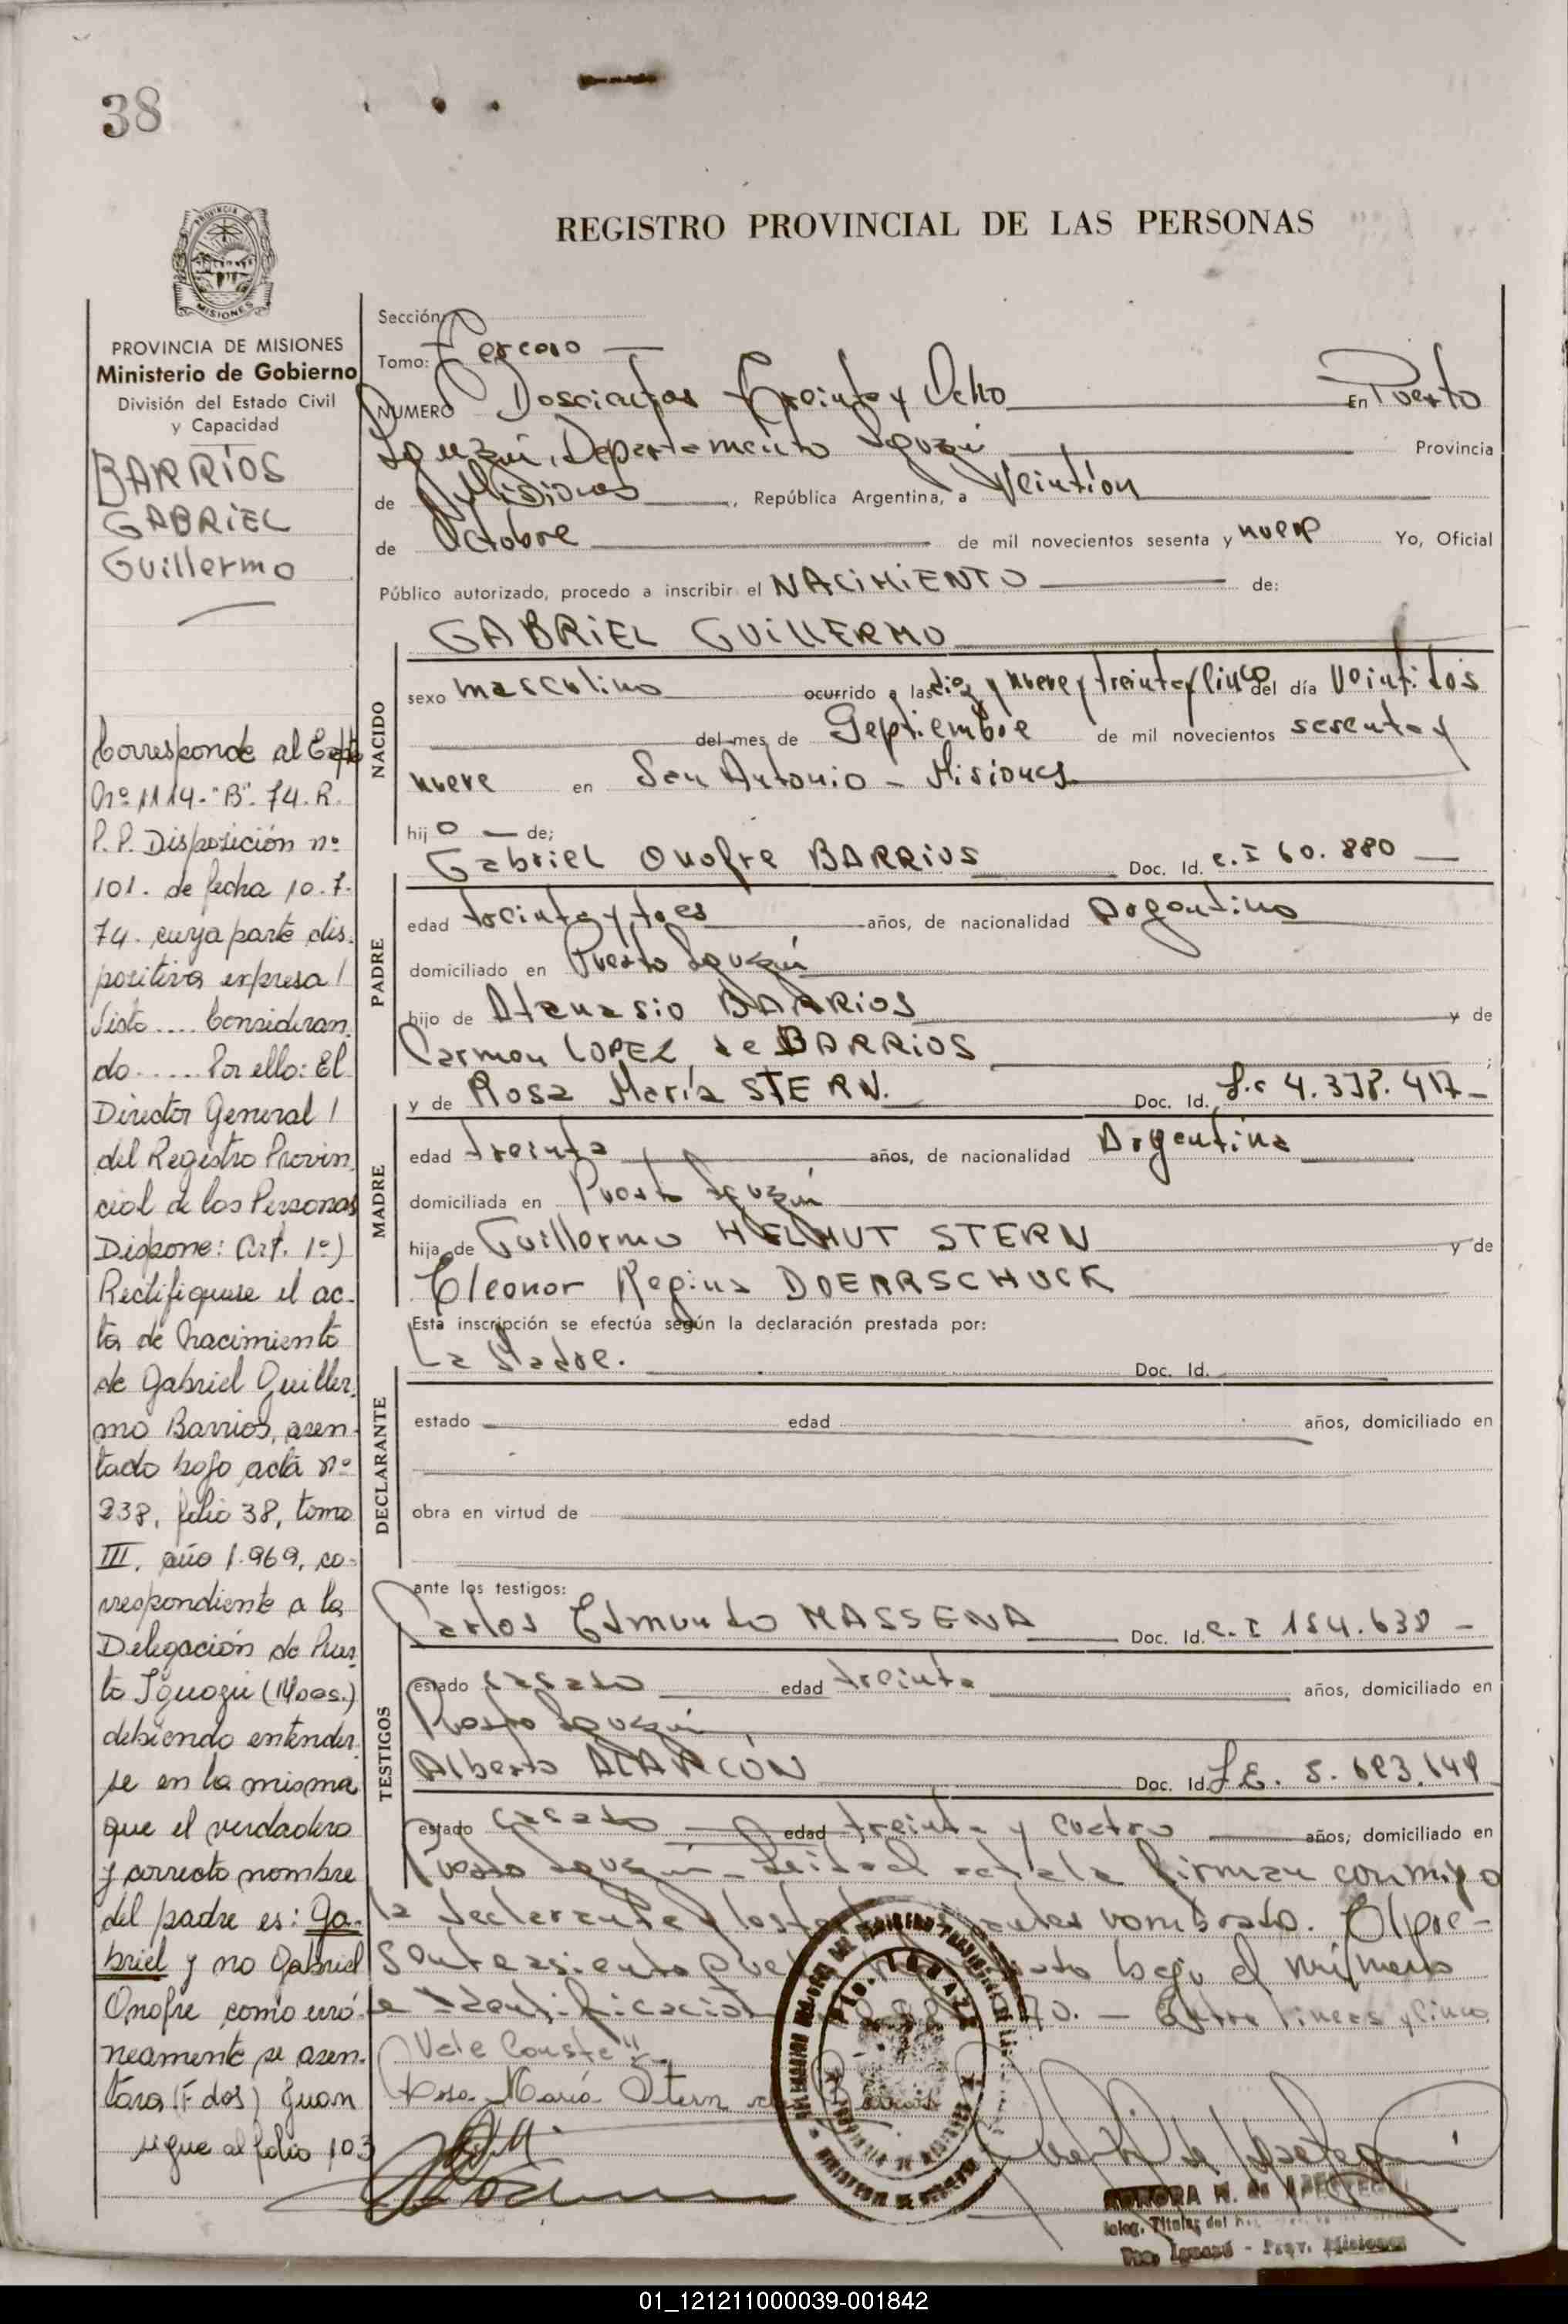 38
REGISTRO PROVINCIAL DE LAS PERSONAS
MISIONES
PROVINCIA DE MISIONES
Ministerio de Gobierno
División del Estado Civil
y Capacidad
BARRÍOS
GABRIEL
Guillermo
Corresponde al Expte
Nº 1114-"B"-74. R.
P.P. Disposición nº
101. de fecha 10.7.
74. cuya parte dis-
positiva expresa /
Visto .... Consideran
do ..... Por ello: El
Director General /
del Registro Provin
cial de las Personas
Dispone: Art. 1º)
Rectifiquese el ac-
ta de Nacimiento
de Gabriel Guiller-
mo Barrios, asen-
tado bajo acta nº
238, folio 38, tomo
III, año 1.969, co-
rrespondiente a la
Delegación de Puer-
to Iguazú (Mnes.)
debiendo entender-
se en la misma
que el verdadero
y correcto nombre
del padre es: Ga-
briel y no Gabriel
Onofre como erró-
neamente se asen-
tara (Fdos) Juan
sigue al folio 103
Sección:
Tomo: Tercero
NUMERO Doscientos Treinta y Ocho En Puerto
Iguazú, Departamento Iguazú Provincia
de Misiones, República Argentina, a Veintiun
de Octubre de mil novecientos sesenta y nueve Yo, Oficial
Público autorizado, procedo a inscribir el NACIMIENTO de:
GABRIEL GUILLERMO
NACIDO
sexo masculino ocurrido a las diez y nueve y treinta y cinco del día Veintidos
del mes de Septiembre de mil novecientos sesenta y
nueve en San Antonio - Misiones
hijo de;
Gabriel Onofre BARRIOS Doc. Id. C.I 60.880
PADRE
edad treinta y tres años, de nacionalidad Argentino
domiciliado en Puerto Iguazú
hijo de Atanasio BARRIOS y de
Carmen LOPEZ de BARRIOS ;
y de Rosa María STERN. Doc. Id. L.C 4.338.417-
MADRE
edad treinta años, de nacionalidad Argentina
domiciliada en Puerto Iguazú
hija de Guillermo HELMUT STERN y de
Eleonor Regina DOERRSCHUCK
Esta inscripción se efectúa según la declaración prestada por:
La Madre. Doc. Id.
DECLARANTE
estado edad años, domiciliado en
obra en virtud de
ante los testigos:
Carlos Edmundo MASSENA Doc. Id. C.I 184.638 -
TESTIGOS
estado casado edad treinta años, domiciliado en
Puerto Iguazú
Alberto ALARCÓN Doc. Id. L.E. 5.623.149
estado casado edad treinta y cuatro años, domiciliado en
Puerto Iguazú - Leida el acta la firman conmigo
la declarante y los testigos antes nombrado. El pre-
sente asiento bajo el número
de identificación 70. - Entre lineas y cinco
Vale Conste
Rosa María Stern de Barrios
PTO. IGUAZU
AURORA N. de
Deleg. Titular del
Pto. Iguazú - Prov. Misiones
01_121211000039-001842